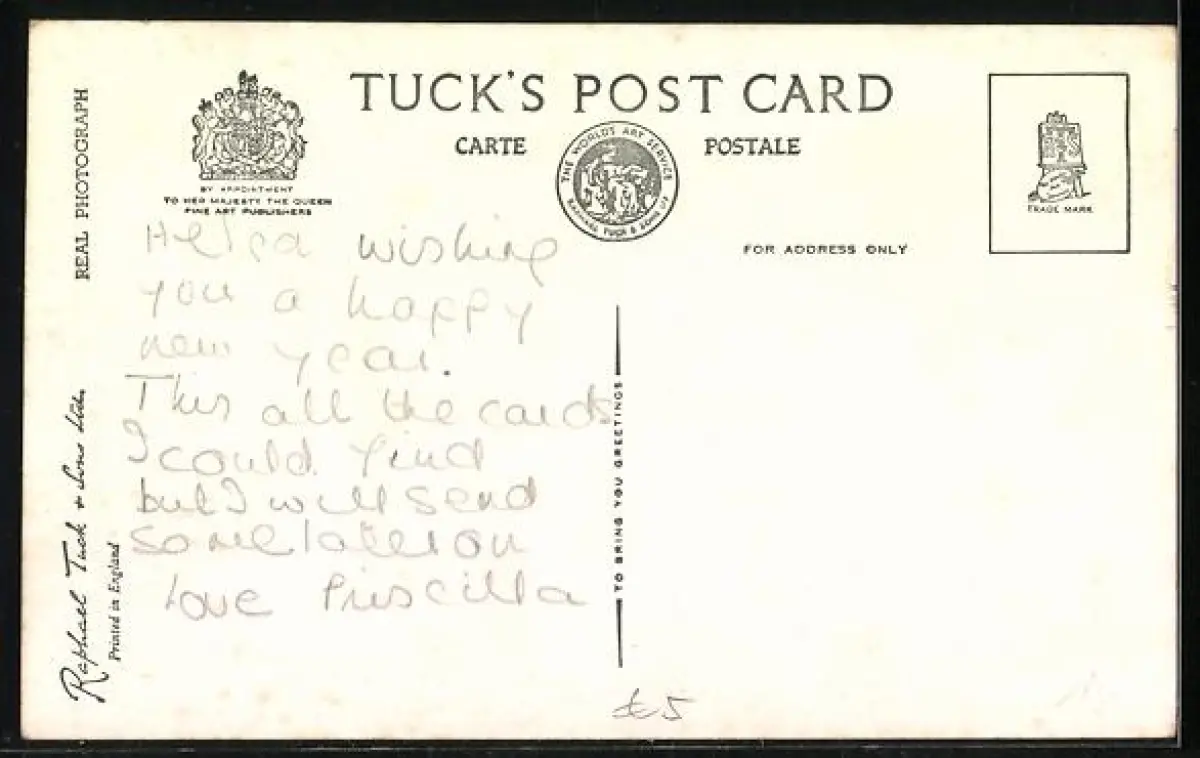 TUCK'S POST CARD
CARTE POSTALE
THE WORLD'S ART SERVICE
RAPHAEL TUCK & SONS LTD
BY APPOINTMENT
TO HER MAJESTY THE QUEEN
FINE ART PUBLISHERS
TRADE MARK
FOR ADDRESS ONLY
REAL PHOTOGRAPH
Raphael Tuck & Sons Ltd.
Printed in England
Helga wishing
you a happy
new year.
This all the cards
I could find
but I will send
some later on
Love Priscilla
TO BRING YOU GREETINGS
£5